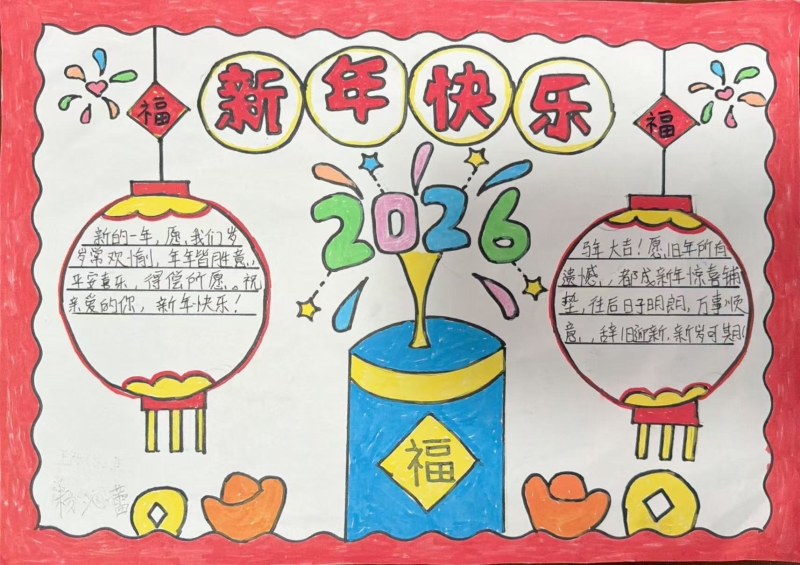 新年快乐
福
福
2026
新的一年,愿我们岁
岁常欢愉,年年皆胜意,
平安喜乐,得偿所愿。祝
亲爱的你,新年快乐!
马年大吉!愿旧年所有
遗憾,都成新年惊喜铺
垫,往后日子明朗,万事顺
意,辞旧迎新,新岁可期
福